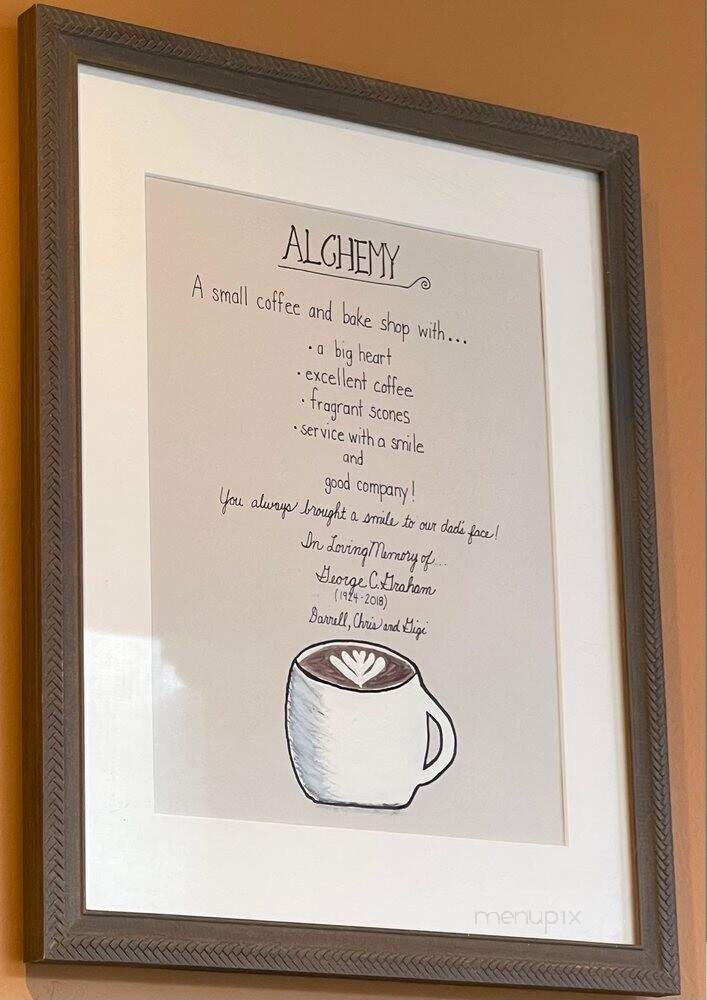 ALCHEMY
A small coffee and bake shop with...
• a big heart
• excellent coffee
• fragrant scones
• service with a smile
and
good company!
You always brought a smile to our dad's face!
In Loving Memory of...
George C. Graham
(1924-2018)
Darrell, Chris and Gigi
menupix